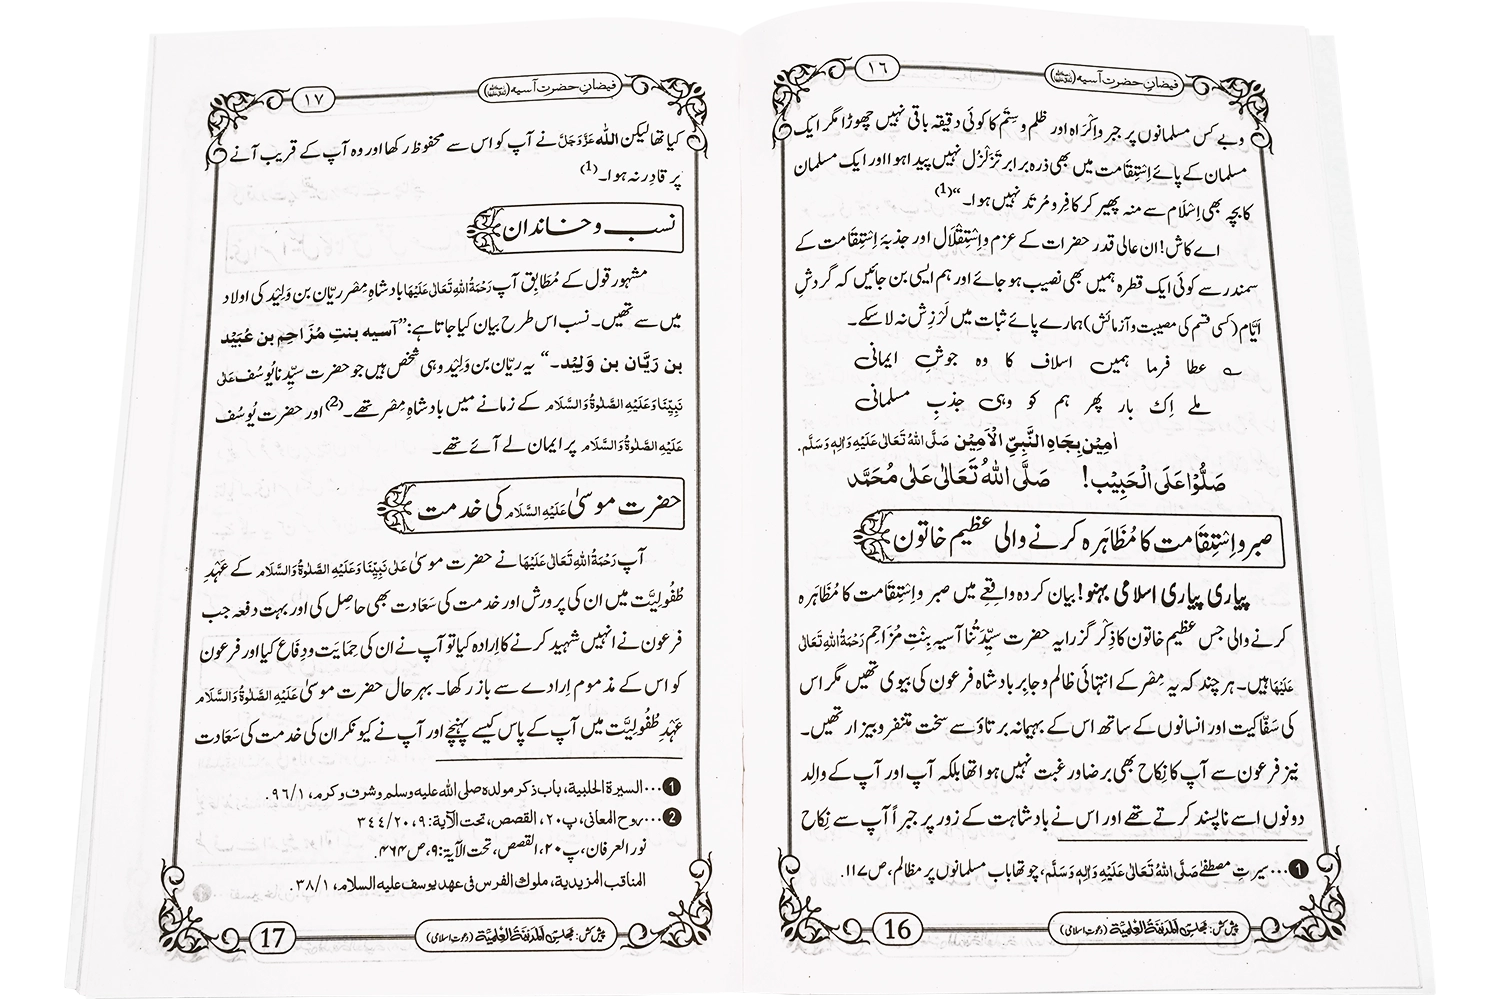 فیضانِ حضرت آسیہ
١٦
و بے کس مسلمانوں پر جبر و اِکْرَاہ اور ظلم و سِتَم کا کوئی دقیقہ باقی نہیں چھوڑا مگر ایک
مسلمان کے پائے اِسْتِقَامت میں بھی ذرہ برابر تَزَلْزُل نہیں پیدا ہوا اور ایک مسلمان
کا بچہ بھی اِسْلَام سے منہ پھیر کر کافِر و مُرتَد نہیں ہوا۔“(1)
اے کاش! ان عالی قدر حضرات کے عزم و اِسْتِقْلَال اور جذبۂ اِسْتِقَامت کے
سمندر سے کوئی ایک قطرہ ہمیں بھی نصیب ہو جائے اور ہم ایسی بن جائیں کہ گردشِ
ایّام (کسی قسم کی مصیبت و آزمائش) ہمارے پائے ثبات میں لَرْزِش نہ لا سکے۔
عطا فرما ہمیں اسلاف کا وہ جوشِ ایمانی
ملے اِک بار پھر ہم کو وہی جذبِ مسلمانی
اٰمِیْن بِجَاہِ النَّبِیِّ الْاَمِیْن صَلَّی اللہُ تَعَالٰی عَلَیْہِ وَاٰلِہٖ وَسَلَّم.
صَلُّوْا عَلَی الْحَبِیْب! صَلَّی اللہُ تَعَالٰی عَلٰی مُحَمَّد
صبر و اِسْتِقَامت کا مُظَاہَرہ کرنے والی عظیم خاتون
پیاری پیاری اسلامی بہنو! بیان کردہ واقِعے میں صبر و اِسْتِقَامت کا مُظَاہَرہ
کرنے والی جس عظیم خاتون کا ذِکْر گزرا یہ حضرت سیِّدَتُنا آسیہ بِنْتِ مُزَاحِم رَحْمَۃُ اللہِ تَعَالٰی
عَلَیْہَا ہیں۔ ہر چند کہ یہ مِصْر کے انتہائی ظالم و جابِر بادشاہ فرعون کی بیوی تھیں مگر اس
کی سَفّاکیت اور انسانوں کے ساتھ اس کے بہیمانہ برتاؤ سے سخت متنفر و بیزار تھیں۔
نیز فرعون سے آپ کا نِکاح بھی برضا و رغبت نہیں ہوا تھا بلکہ آپ اور آپ کے والِد
دونوں اسے ناپسند کرتے تھے اور اس نے بادشاہت کے زور پر جبراً آپ سے نِکاح
1 ...سیرتِ مصطفٰے صَلَّی اللہُ تَعَالٰی عَلَیْہِ وَاٰلِہٖ وَسَلَّم، چوتھا باب مسلمانوں پر مظالم، ص۱۱۷.
پیش کش: مجلس اَلْمَدِیْنَۃُ الْعِلْمِیَّۃ (دعوتِ اسلامی)
16
فیضانِ حضرت آسیہ
١٧
کیا تھا لیکن اللہ عَزَّوَجَلَّ نے آپ کو اس سے محفوظ رکھا اور وہ آپ کے قریب آنے
پر قادِر نہ ہوا۔(1)
نسب و خاندان
مشہور قول کے مُطَابِق آپ رَحْمَۃُ اللہِ تَعَالٰی عَلَیْہَا بادشاہِ مِصْر رَیّان بن وَلِیْد کی اولاد
میں سے تھیں۔ نسب اس طرح بیان کیا جاتا ہے: ”آسیہ بنتِ مُزَاحِم بن عُبَیْد
بن رَیَّان بن وَلِیْد۔“ یہ ریّان بن وَلِیْد وہی شخص ہیں جو حضرت سیِّدنا یُوسُف عَلٰی
نَبِیِّنَا وَعَلَیْہِ الصَّلٰوۃُ وَالسَّلَام کے زمانے میں بادشاہِ مِصْر تھے۔(2) اور حضرت یُوسُف
عَلَیْہِ الصَّلٰوۃُ وَالسَّلَام پر ایمان لے آئے تھے۔
حضرت موسیٰ عَلَیْہِ السَّلَام کی خدمت
آپ رَحْمَۃُ اللہِ تَعَالٰی عَلَیْہَا نے حضرت موسیٰ عَلٰی نَبِیِّنَا وَعَلَیْہِ الصَّلٰوۃُ وَالسَّلَام کے عَہْدِ
طُفُولِیَّت میں ان کی پرورش اور خدمت کی سَعَادت بھی حاصِل کی اور بہت دفعہ جب
فرعون نے انہیں شہید کرنے کا اِرادہ کیا تو آپ نے ان کی حِمَایَت و دِفَاع کیا اور فرعون
کو اس کے مذموم اِرادے سے باز رکھا۔ بہر حال حضرت موسیٰ عَلَیْہِ الصَّلٰوۃُ وَالسَّلَام
عَہْدِ طُفُولِیَّت میں آپ کے پاس کیسے پہنچے اور آپ نے کیونکر ان کی خدمت کی سَعَادت
1 ...السیرۃ الحلبیۃ، باب ذکر مولدہ صلی اللہ علیہ وسلم وشرف وکرم، ١/٩٦.
2 ...روح المعانی، پ۲۰، القصص، تحت الآیۃ: ۹، ۲۰/۳۴۴
نور العرفان، پ۲۰، القصص، تحت الآیۃ:۹، ص۴۶۴.
المناقب المزیدیۃ، ملوک الفرس فی عھد یوسف علیہ السلام، ١/٣٨.
پیش کش: مجلس اَلْمَدِیْنَۃُ الْعِلْمِیَّۃ (دعوتِ اسلامی)
17